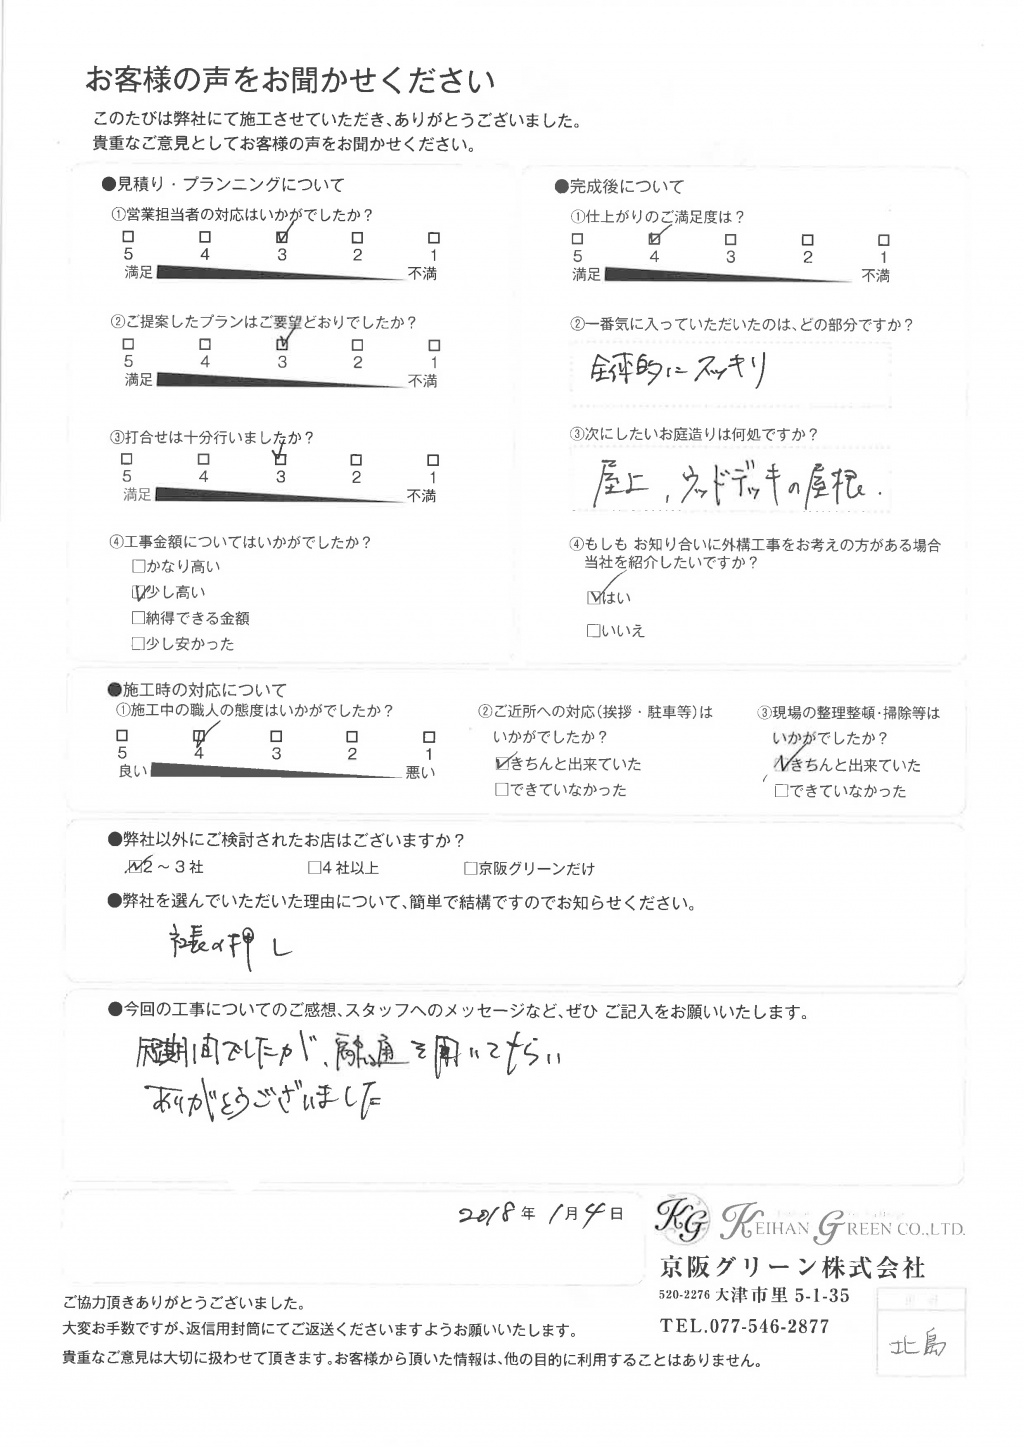 お客様の声をお聞かせください
このたびは弊社にて施工させていただき、ありがとうございました。
貴重なご意見としてお客様の声をお聞かせください。
●見積り・プランニングについて
①営業担当者の対応はいかがでしたか？
□ □ ☑ □ □
5 4 3 2 1
満足 不満
②ご提案したプランはご要望どおりでしたか？
□ □ ☑ □ □
5 4 3 2 1
満足 不満
③打合せは十分行いましたか？
□ □ ☑ □ □
5 4 3 2 1
満足 不満
④工事金額についてはいかがでしたか？
□かなり高い
☑少し高い
□納得できる金額
□少し安かった
●完成後について
①仕上がりのご満足度は？
□ ☑ □ □ □
5 4 3 2 1
満足 不満
②一番気に入っていただいたのは、どの部分ですか？
全体的にスッキリ
③次にしたいお庭造りは何処ですか？
屋上、ウッドデッキの屋根.
④もしも お知り合いに外構工事をお考えの方がある場合
当社を紹介したいですか？
☑はい
□いいえ
●施工時の対応について
①施工中の職人の態度はいかがでしたか？
□ ☑ □ □ □
5 4 3 2 1
良い 悪い
②ご近所への対応(挨拶・駐車等)は
いかがでしたか？
☑きちんと出来ていた
□できていなかった
③現場の整理整頓・掃除等は
いかがでしたか？
☑きちんと出来ていた
□できていなかった
●弊社以外にご検討されたお店はございますか？
☑2～3社 □4社以上 □京阪グリーンだけ
●弊社を選んでいただいた理由について、簡単で結構ですのでお知らせください。
社長の押し
●今回の工事についてのご感想、スタッフへのメッセージなど、ぜひ ご記入をお願いいたします。
短期間でしたが、融通を用いてもらい
ありがとうございました
2018年 1月 4日
KG KEIHAN GREEN CO.,LTD.
京阪グリーン株式会社
520-2276 大津市里 5-1-35
TEL.077-546-2877
ご協力頂きありがとうございました。
大変お手数ですが、返信用封筒にてご返送くださいますようお願いいたします。
貴重なご意見は大切に扱わせて頂きます。お客様から頂いた情報は、他の目的に利用することはありません。
北島